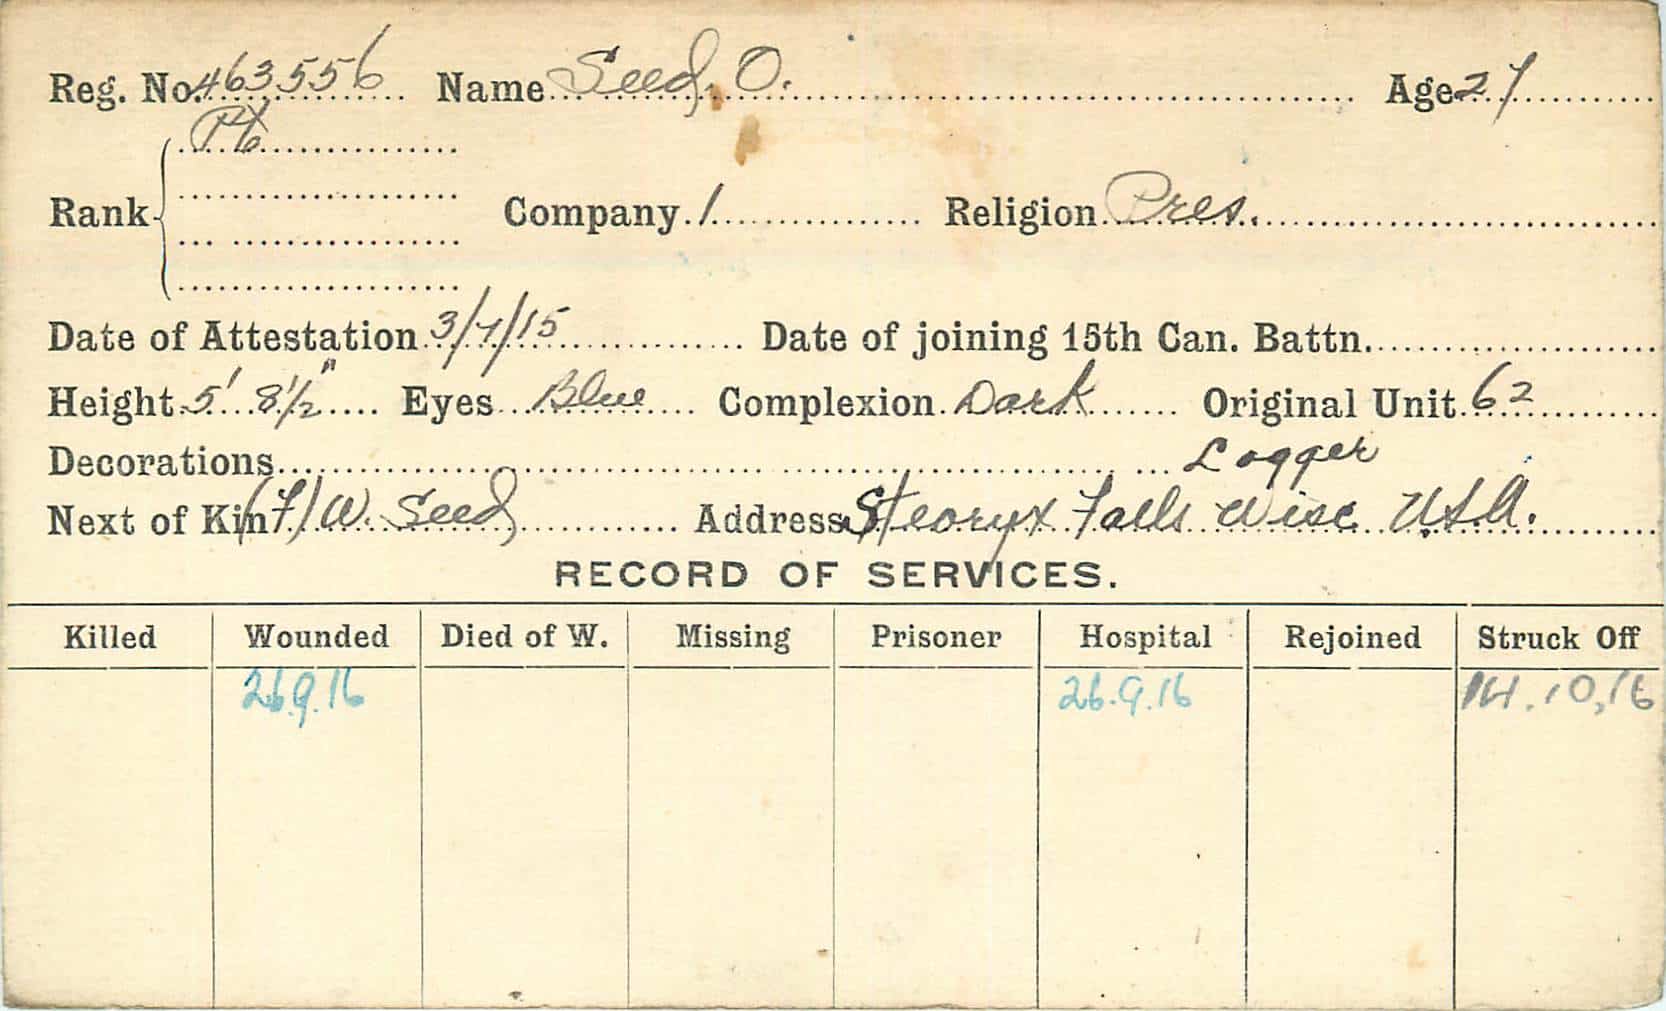 Reg. No. 463556 Name Seed, O. Age 27
Pte
Rank Company 1 Religion Pres.
Date of Attestation 3/7/15 Date of joining 15th Can. Battn.
Height 5' 8½" Eyes Blue Complexion Dark Original Unit 62
Decorations Logger
Next of Kin (F) W. Seed Address Falls Wisc U.S.A.
RECORD OF SERVICES.
Killed Wounded Died of W. Missing Prisoner Hospital Rejoined Struck Off
26.9.16 26.9.16 14.10,16